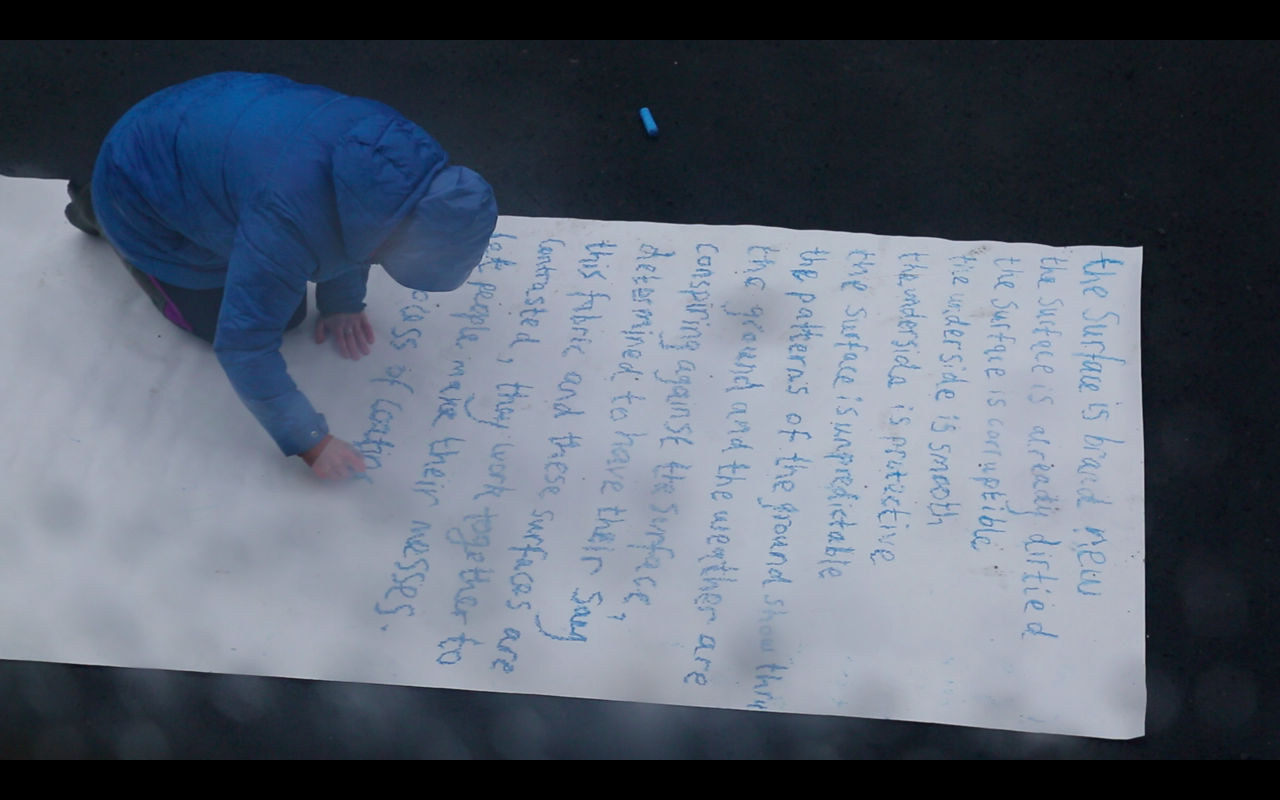 the surface is brand new
the surface is already dirtied
the surface is corruptible
the underside is smooth
the underside is protective
the surface is unpredictable
the patterns of the ground show thru
the ground and the weather are
conspiring against the surface,
determined to have their say
this fabric and these surfaces are
contrasted, they work together to
let people make their messes.
loss of control